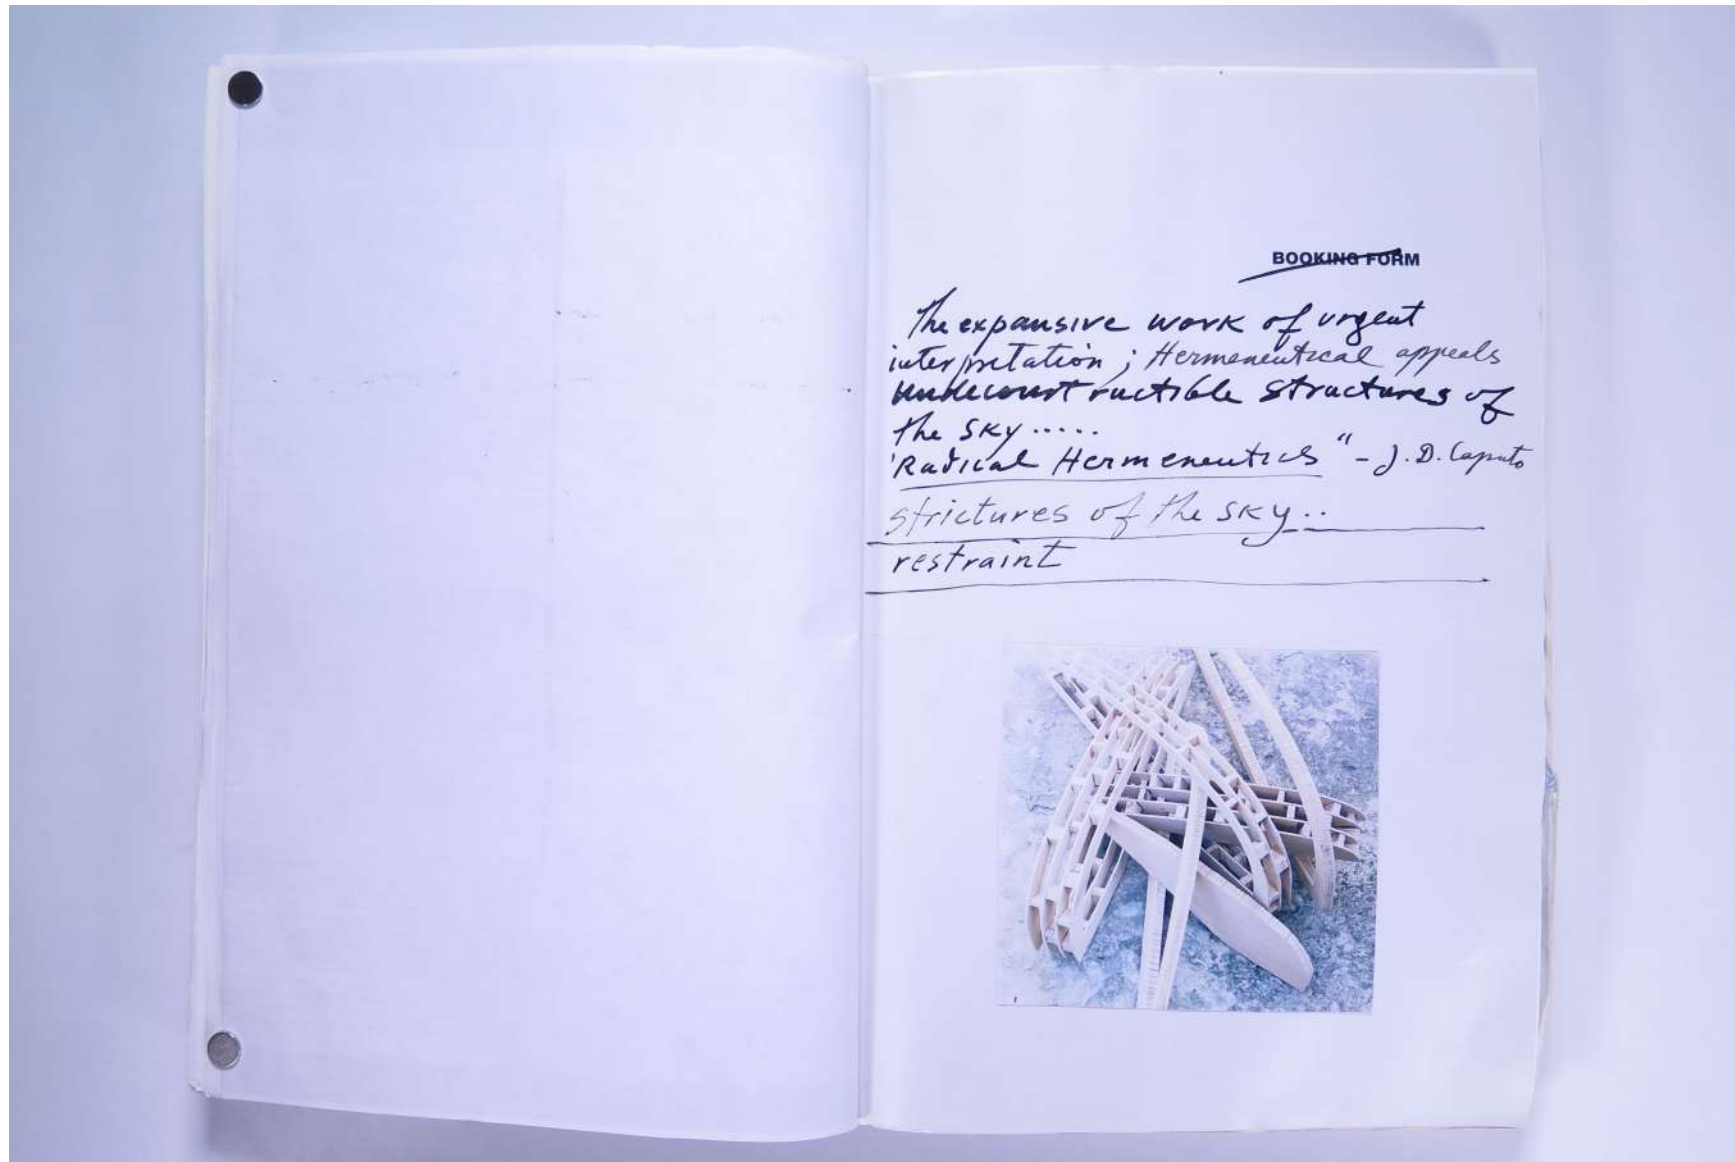 BOOKING FORM
The expansive work of urgent
interpretation ; Hermeneutical appeals
Undeconstructible structures of
the sky .....
'Radical Hermeneutics" - J. D. Caputo
strictures of the sky ..
restraint